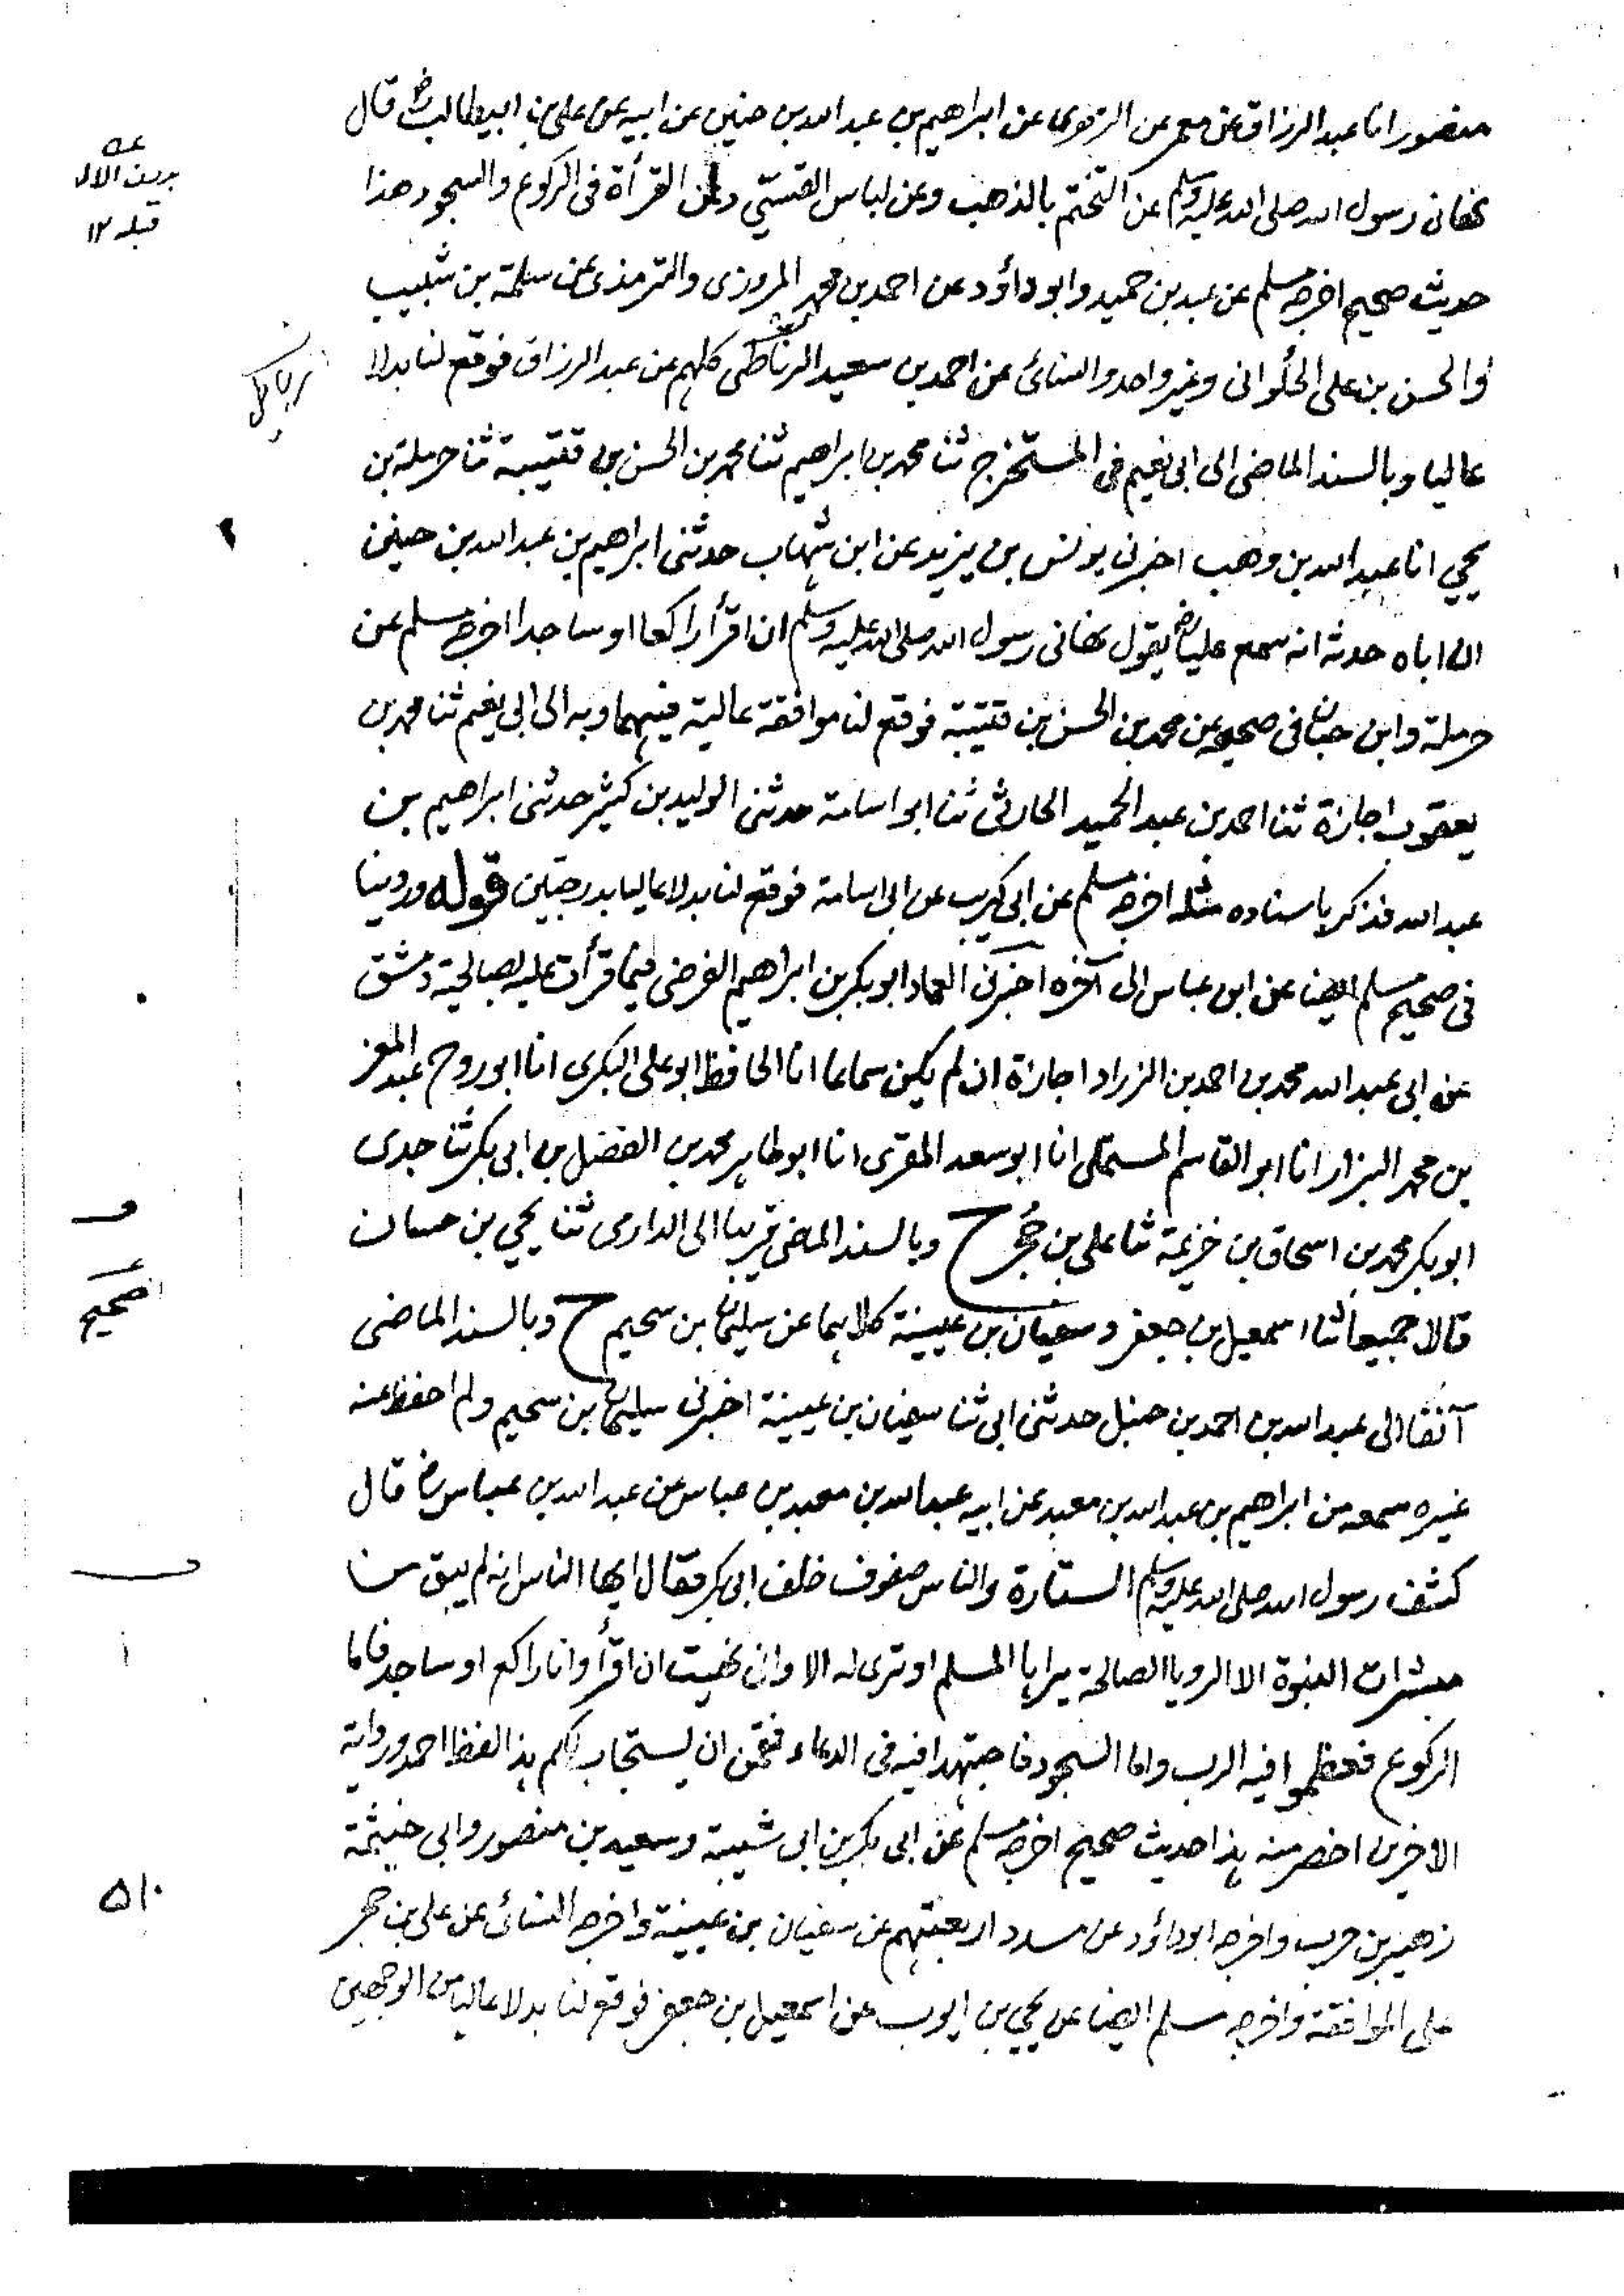 منصور انا عبد الرزاق عن معمر عن الزهرى عن ابراهيم بن عبد الله بن حنين عن ابيه عن على بن ابيطالب رض قال
نهانى رسول الله صلى الله عليه وسلم عن التختم بالذهب وعن لباس القسّي وعن القرأة فى الركوع والسجود هذا
حديث صحيح اخرجه مسلم عن عبد بن حميد وابو داؤد عن احمد بن محمد المروزى والترمذى عن سلمة بن شبيب
والحسن بن على الحلوانى وغير واحد والنسائى عن احمد بن سعيد الرباطى كلهم عن عبد الرزاق فوقع لنا بدلا
عاليا وبالسند الماضى الى ابى نعيم فى المستخرج ثنا محمد بن ابراهيم ثنا محمد بن الحسن بن قتيبة ثنا حرملة بن
يحيي انا عبد الله بن وهب اخبرنى يونس بن يزيد عن ابن شهاب حدثنى ابراهيم بن عبد الله بن حنين
ان اباه حدثه انه سمع عليا رض يقول نهانى رسول الله صلى الله عليه وسلم ان اقرأ راكعا او ساجدا اخرجه مسلم عن
حرملة وابن حبان فى صحيحه عن محمد بن الحسن بن قتيبة فوقع لنا موافقة عالية فيهما وبه الى ابى نعيم ثنا محمد بن
يعقوب اجازة ثنا احمد بن عبد الحميد الحارثى ثنا ابو اسامة حدثنى الوليد بن كثير حدثنى ابراهيم بن
عبد الله فذكر باسناده مثله اخرجه مسلم عن ابى كريب عن ابى اسامة فوقع لنا بدلا عاليا بدرجتين قوله وروينا
فى صحيح مسلم ايضا عن ابن عباس الى آخره اخبرنى العماد ابو بكر بن ابراهيم الفرضى فيما قرأت عليه بصالحية دمشق
عن ابى عبد الله محمد بن احمد بن الزراد اجازة ان لم يكن سماعا انا الحافظ ابو على البكرى انا ابو روح عبد المعز
بن محمد البزار انا ابو القاسم المستملى انا ابو سعد المقرى انا ابو طاهر محمد بن الفضل بن ابى بكر ثنا جدى
ابو بكر محمد بن اسحاق بن خزيمة ثنا على بن حُجر ح وبالسند المضى قريبا الى الدارمى ثنا يحيي بن حسان
قالا جميعا ثنا اسمعيل بن جعفر وسفيان بن عيينة كلاهما عن سليمان بن سحيم ح وبالسند الماضى
آنفا الى عبد الله بن احمد بن حنبل حدثنى ابى ثنا سفيان بن عيينة اخبرنى سليمان بن سحيم ولم احفظ عنه
غيره سمعه من ابراهيم بن عبد الله بن معبد عن ابيه عبد الله بن معبد بن عباس عن عبد الله بن عباس رض قال
كشف رسول الله صلى الله عليه وسلم الستارة والناس صفوف خلف ابى بكر فقال ايها الناس انه لم يبق من
مبشرات النبوة الا الرويا الصالحة يراها المسلم او ترى له الا وانى نهيت ان اقرأ وانا راكع او ساجد فاما
الركوع فعظموا فيه الرب واما السجود فاجتهدوا فيه فى الدعاء فقمن ان يستجاب لكم هذا لفظ احمد ورواية
الاخرين اخصر منه هذا حديث صحيح اخرجه مسلم عن ابى بكر بن ابى شيبة وسعيد بن منصور وابى خيثمة
زهير بن حرب واخرجه ابو داؤد عن مسدد اربعتهم عن سفيان بن عيينة واخرجه النسائى عن على بن حجر
على الموافقة واخرجه مسلم ايضا عن يحيي بن ايوب عن اسمعيل بن جعفر فوقع لنا بدلا عاليا من الوجهين
قبله ١٢
٢
صحيح
٥١٠